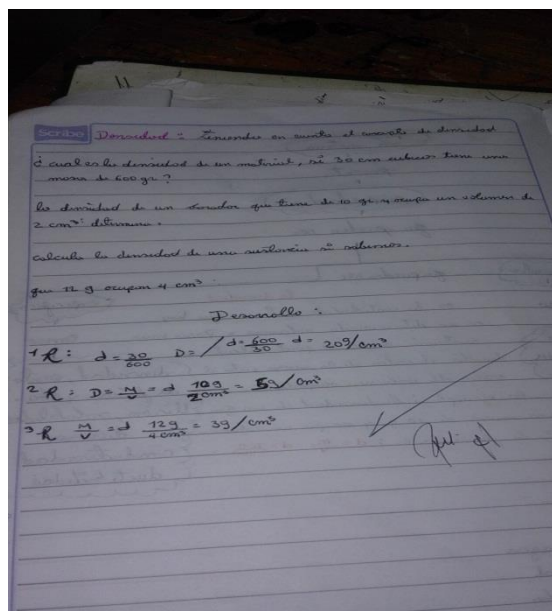 Scribe Densidad: Teniendo en cuenta el concepto de densidad
¿cual es la densidad de un material, si 30 cm cubicos tiene una
masa de 600 gr?
la densidad de un que tiene de 10 gr. y ocupa un volumen de
2 cm³ determine.
calcula la densidad de una sustancia si sabemos.
que 12 g ocupan 4 cm³
Desarrollo:
1 R: d = 30/600 D = / d = 600/30 d = 20g/cm³
2 R: D = M/V = d 10g/2cm³ = 5g/cm³
3 R M/V = d 12g/4cm³ = 3g/cm³